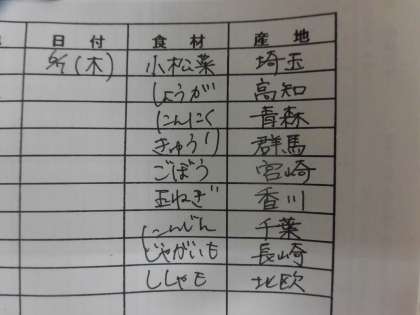 日付 食材 産地
(木) 小松菜 埼玉
しょうが 高知
にんにく 青森
きゅうり 群馬
ごぼう 宮崎
玉ねぎ 香川
にんじん 千葉
じゃがいも 長崎
ししゃも 北欧